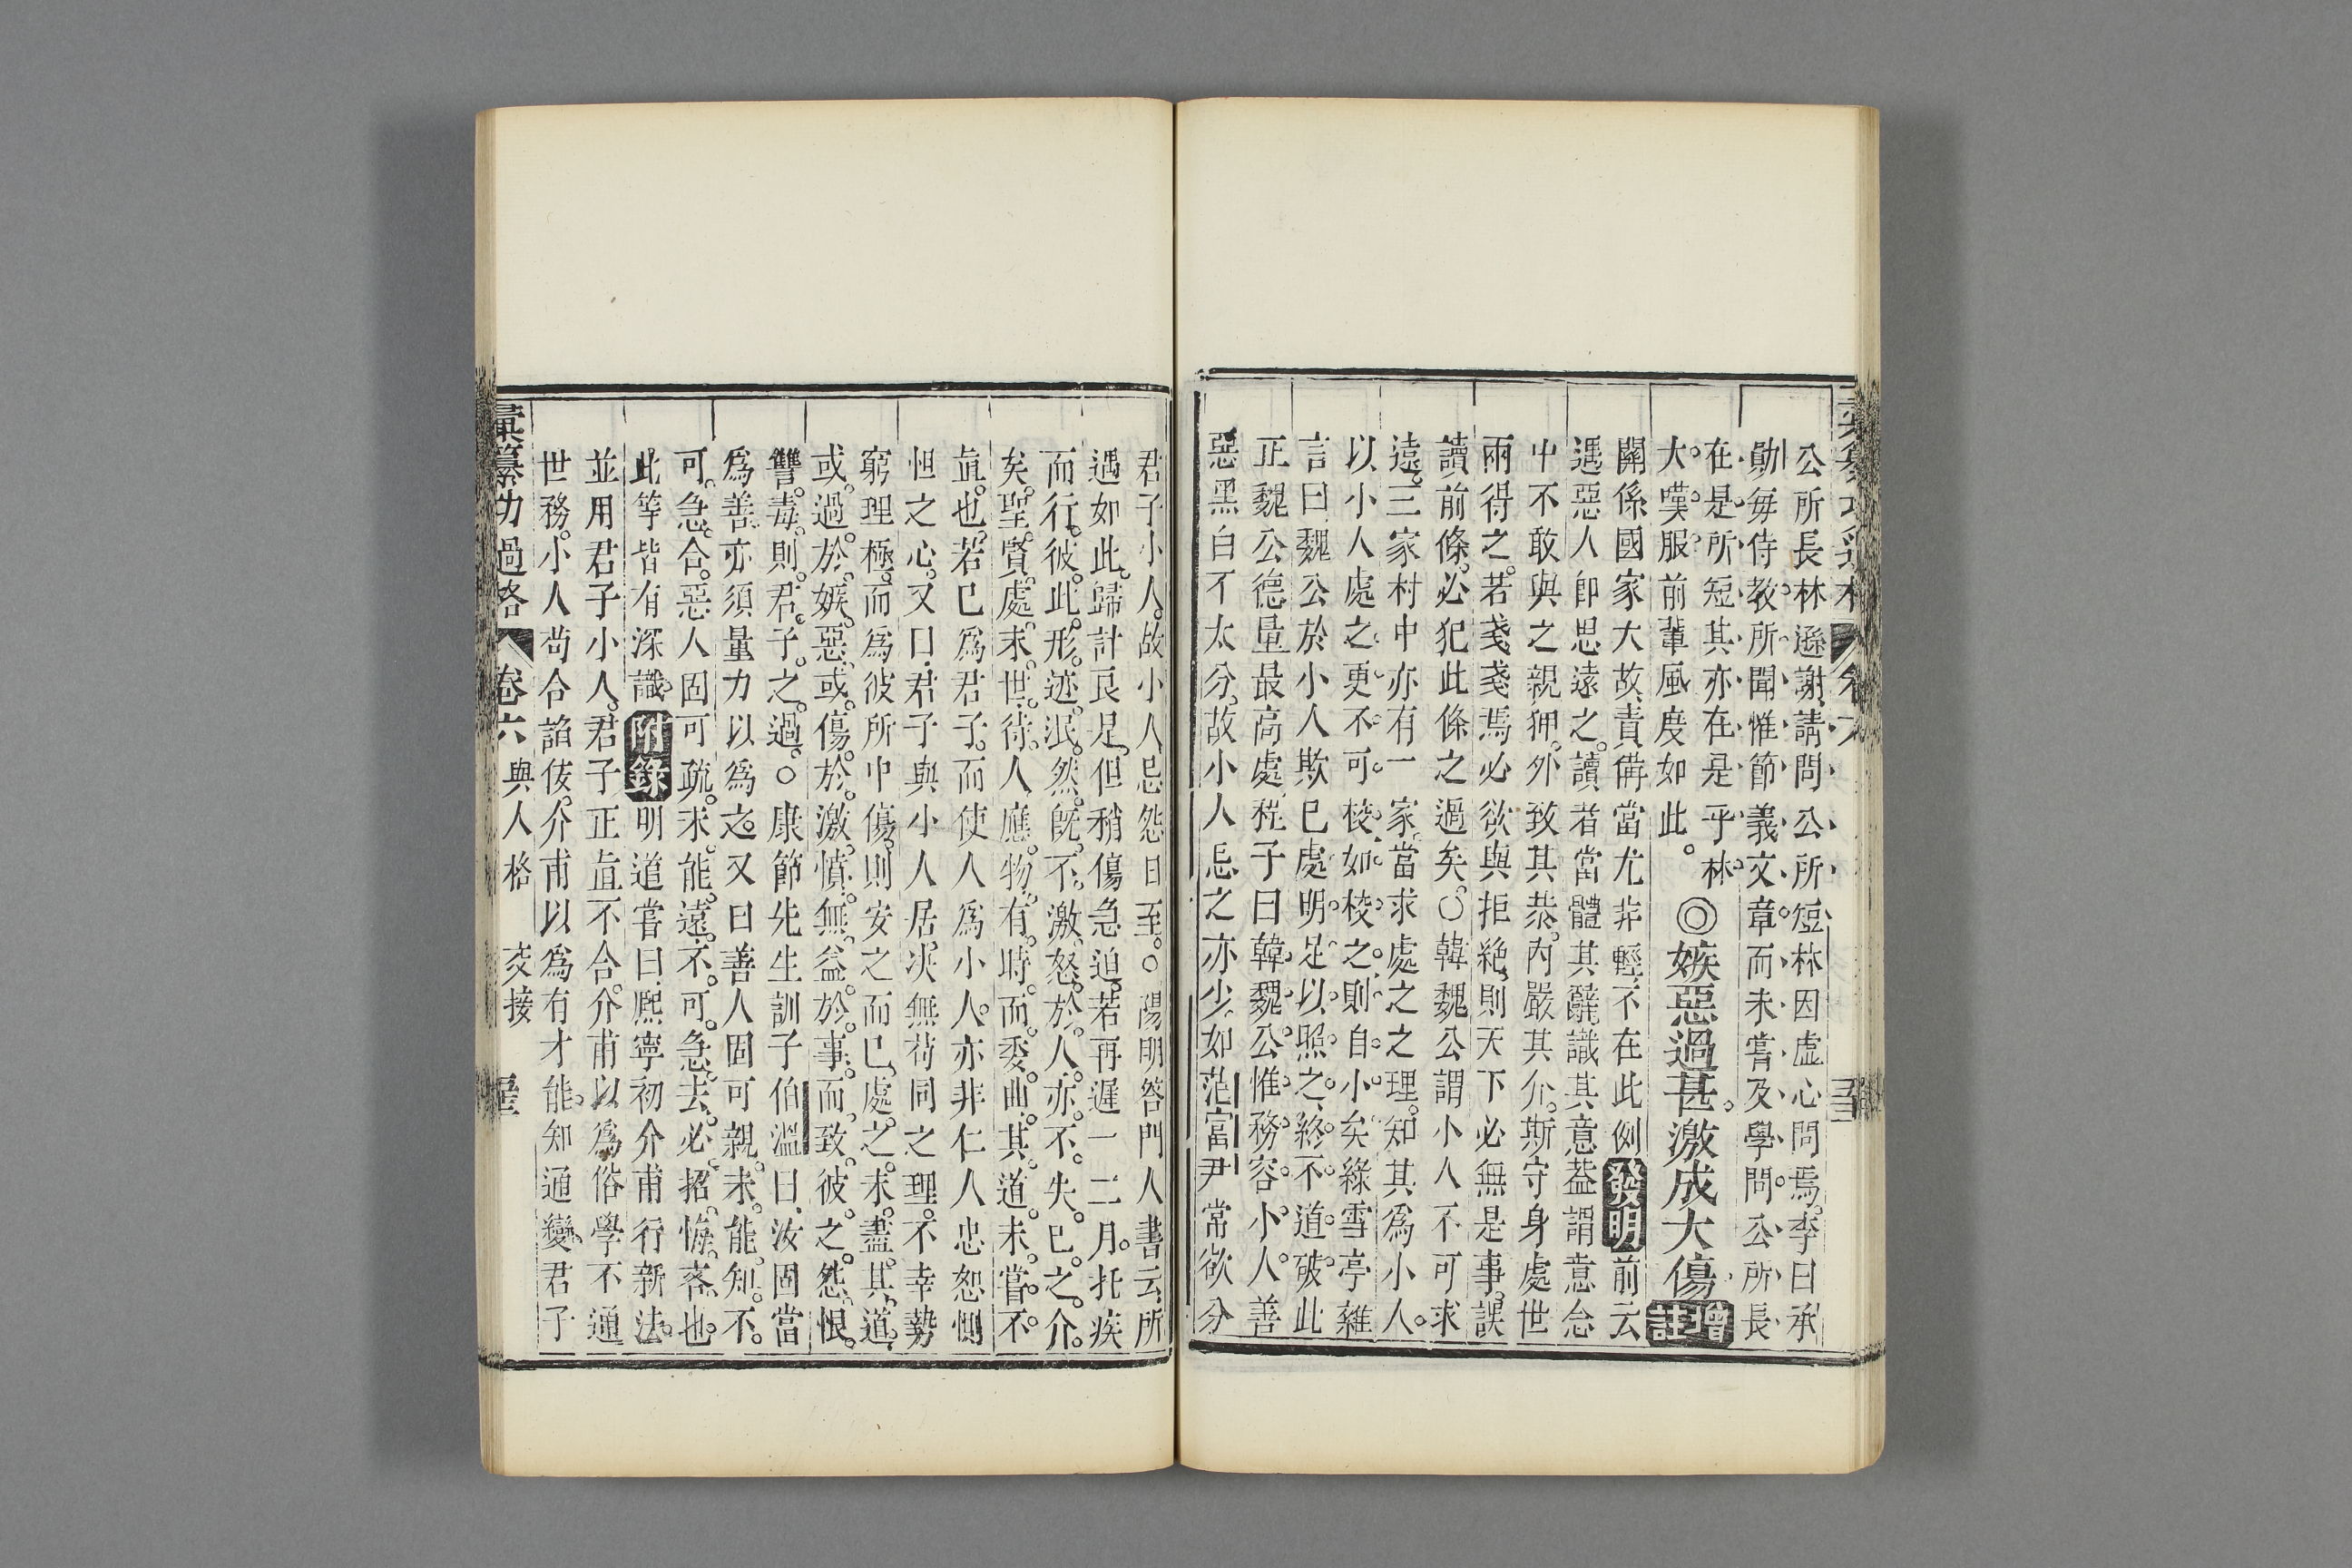 公所長林遜謝請問公所短林因虛心問焉李曰承
勛每侍教所聞惟節義文章而未嘗及學問公所長
在是所短其亦在是乎林
大嘆服前輩風度如此。◎嫉惡過甚激成大傷增註
關係國家大故責備當尤非輕不在此例發明前云
遇惡人卽思遠之。讀者當體其辭識其意葢謂意念
中不敢與之親狎。外致其恭。內嚴其介。斯守身處世
兩得之。若戔戔焉必欲與拒絕則天下必無是事。誤
讀前條。必犯此條之過矣。○韓魏公謂小人不可求
遠。三家村中亦有一家。當求處之之理。知其爲小人。
以小人處之更不可校如校之則自小矣綠雪亭雜
言曰魏公於小人欺已處明足以照之終不道破此
正魏公德量最高處程子曰韓魏公惟務容小人善
惡黑白不太分。故小人忌之亦少。如范富尹常欲分
君子小人。故小人忌怨日至。○陽明答門人書云所
遇如此。歸計良是。但稍傷急迫。若再遲一二月。托疾
而行。彼此形迹泯然。旣不激怒於人。亦不失已之介。
矣。聖賢處末世。待人應物。有時而委曲。其道未嘗不
直也。若已爲君子。而使人爲小人。亦非仁人忠恕惻
怛之心。又曰君子與小人居。决無苟同之理。不幸勢
窮理極。而爲彼所中傷。則安之而已。處之未盡其道。
或過於嫉惡。或傷於激憤。無益於事。而致彼之怨恨
讐毒。則君子之過。○康節先生訓子伯溫曰汝固當
爲善。亦須量力以爲之。又曰善人固可親。未能知。不
可急合。惡人固可疏。未能遠。不可急去。必招悔吝也。
此等皆有深識。附錄明道嘗曰熙寧初介甫行新法。
並用君子小人。君子正直不合。介甫以爲俗學不通
世務。小人苟合諂伎。介甫以爲有才能。知通變。君子
彙纂功過格 卷六 與人格 交接